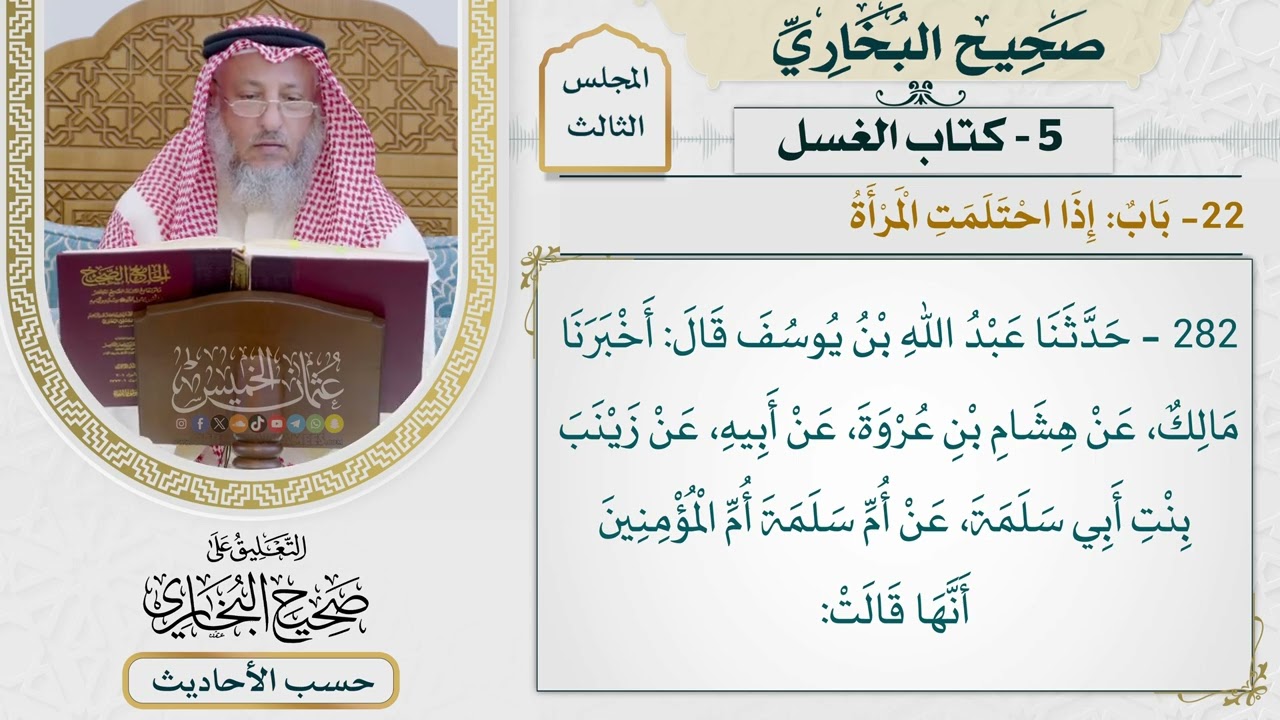 صَحِيحُ البُخَارِيِّ
المجلس
الثالث
5 - كتاب الغسل
22- بَابٌ: إِذَا احْتَلَمَتِ الْمَرْأَةُ
282 - حَدَّثَنَا عَبْدُ اللهِ بْنُ يُوسُفَ قَالَ: أَخْبَرَنَا
مَالِكٌ، عَنْ هِشَامِ بْنِ عُرْوَةَ، عَنْ أَبِيهِ، عَنْ زَيْنَبَ
بِنْتِ أَبِي سَلَمَةَ، عَنْ أُمِّ سَلَمَةَ أُمِّ الْمُؤْمِنِينَ
أَنَّهَا قَالَتْ:
الجامع الصحيح
عُثمان الخميس
التَّعْلِيقُ عَلَى
صَحِيحِ البُخَارِي
حسب الأحاديث